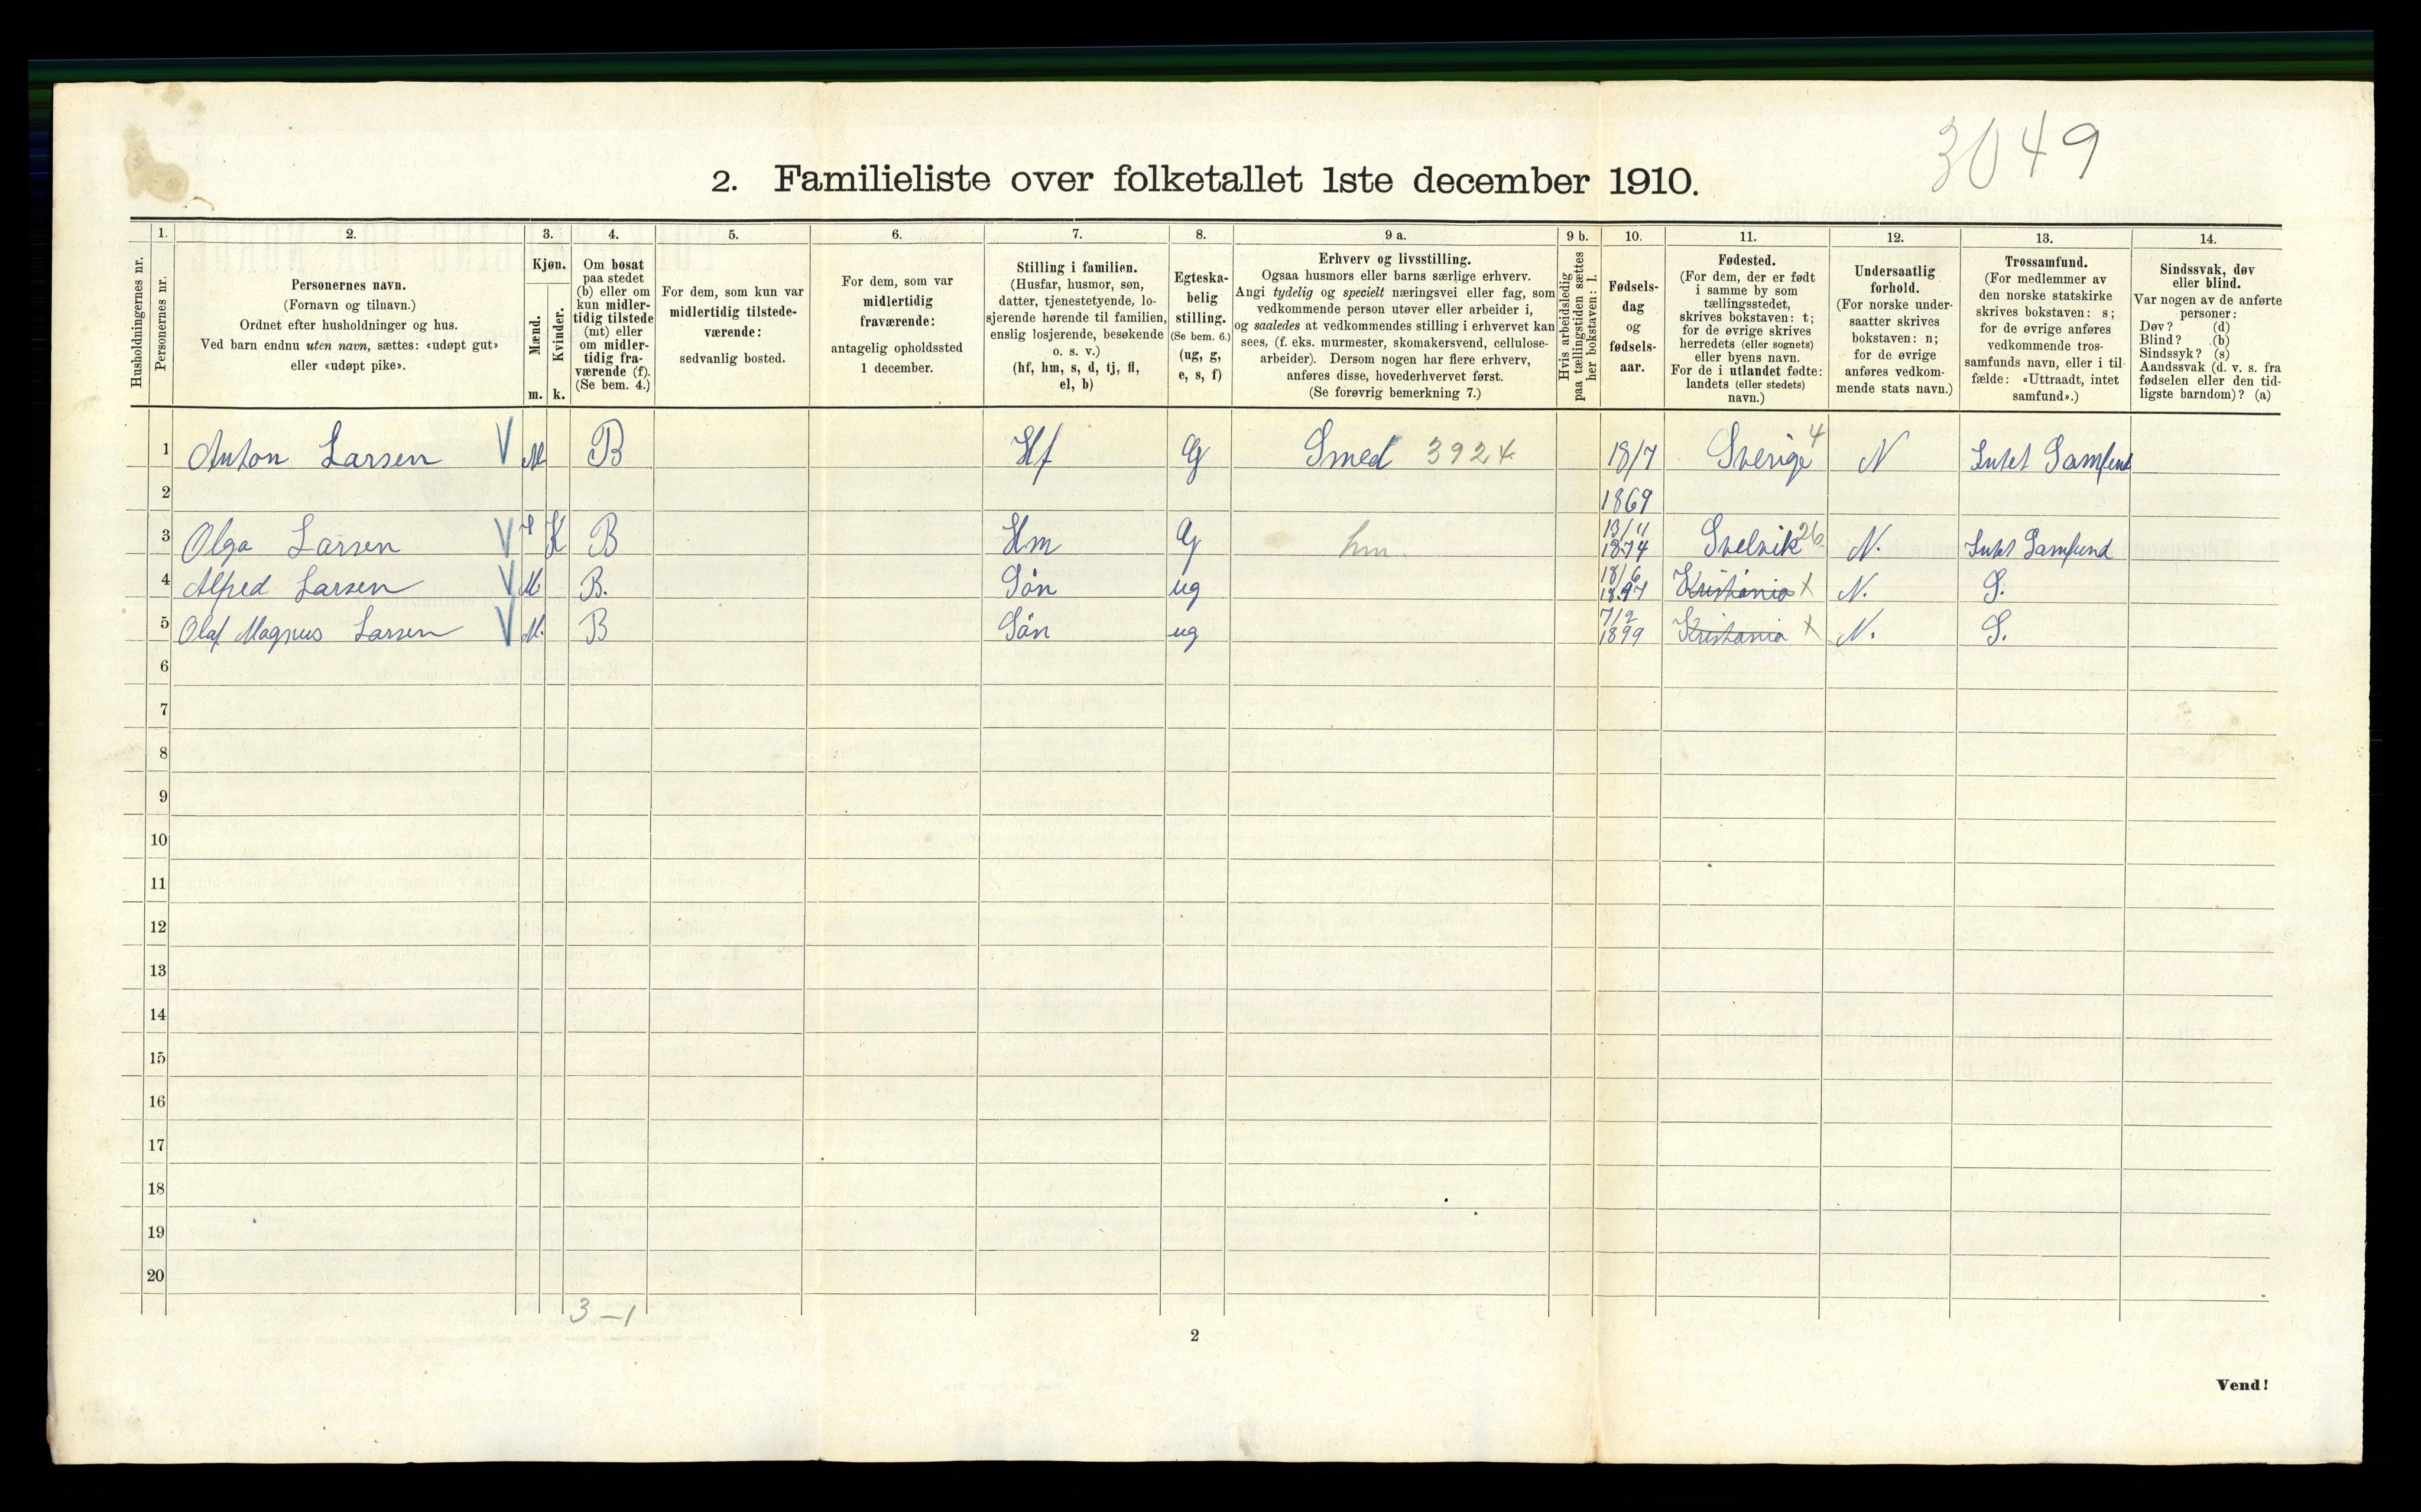 3049
2. Familieliste over folketallet 1ste december 1910.
Husholdningernes nr.
1.
Personernes nr.
2.
Personernes navn.
(Fornavn og tilnavn.)
Ordnet efter husholdninger og hus.
Ved barn endnu uten navn, sættes: «udøpt gut»
eller «udøpt pike».
3.
Kjøn.
Mænd.
Kvinder.
m. k.
4.
Om bosat
paa stedet
(b) eller om
kun midler-
tidig tilstede
(mt) eller
om midler-
tidig fra-
værende (f).
(Se bem. 4.)
5.
For dem, som kun var
midlertidig tilstede-
værende:
sedvanlig bosted.
6.
For dem, som var
midlertidig
fraværende:
antagelig opholdssted
1 december.
7.
Stilling i familien.
(Husfar, husmor, søn,
datter, tjenestetyende, lo-
sjerende hørende til familien,
enslig losjerende, besøkende
o. s. v.)
(hf, hm, s, d, tj, fl,
el, b)
8.
Egteska-
belig
stilling.
(Se bem. 6.)
(ug, g,
e, s, f)
9 a.
Erhverv og livsstilling.
Ogsaa husmors eller barns særlige erhverv.
Angi tydelig og specielt næringsvei eller fag, som
vedkommende person utøver eller arbeider i,
og saaledes at vedkommendes stilling i erhvervet kan
sees, (f. eks. murmester, skomakersvend, cellulose-
arbeider). Dersom nogen har flere erhverv,
anføres disse, hovederhvervet først.
(Se forøvrig bemerkning 7.)
9 b.
Hvis arbeidsledig
paa tællingstiden sættes
her bokstaven: l.
10.
Fødsels-
dag
og
fødsels-
aar.
11.
Fødested.
(For dem, der er født
i samme by som
tællingsstedet,
skrives bokstaven: t;
for de øvrige skrives
herredets (eller sognets)
eller byens navn.
For de i utlandet fødte:
landets (eller stedets)
navn.)
12.
Undersaatlig
forhold.
(For norske under-
saatter skrives
bokstaven: n;
for de øvrige
anføres vedkom-
mende stats navn.)
13.
Trossamfund.
(For medlemmer av
den norske statskirke
skrives bokstaven: s;
for de øvrige anføres
vedkommende tros-
samfunds navn, eller i til-
fælde: «Uttraadt, intet
samfund».)
14.
Sindssvak, døv
eller blind.
Var nogen av de anførte
personer:
Døv? (d)
Blind? (b)
Sindssyk? (s)
Aandssvak (d. v. s. fra
fødselen eller den tid-
ligste barndom)? (a)
1 Anton Larsen V M B Hf G Smed 3924 18/7 Sverige 4 N Intet Samfund
2 1869
3 Olga Larsen V K B Hm G hm. 13/11 1874 Svelvik 26 N. Intet Samfund
4 Alfred Larsen V M B. Søn ug 18/6 1897 Kristiania X N. S.
5 Olaf Magnus Larsen V M. B Søn ug 7/2 1899 Kristiania X N. S.
6
7
8
9
10
11
12
13
14
15
16
17
18
19
20
3-1
2
Vend!